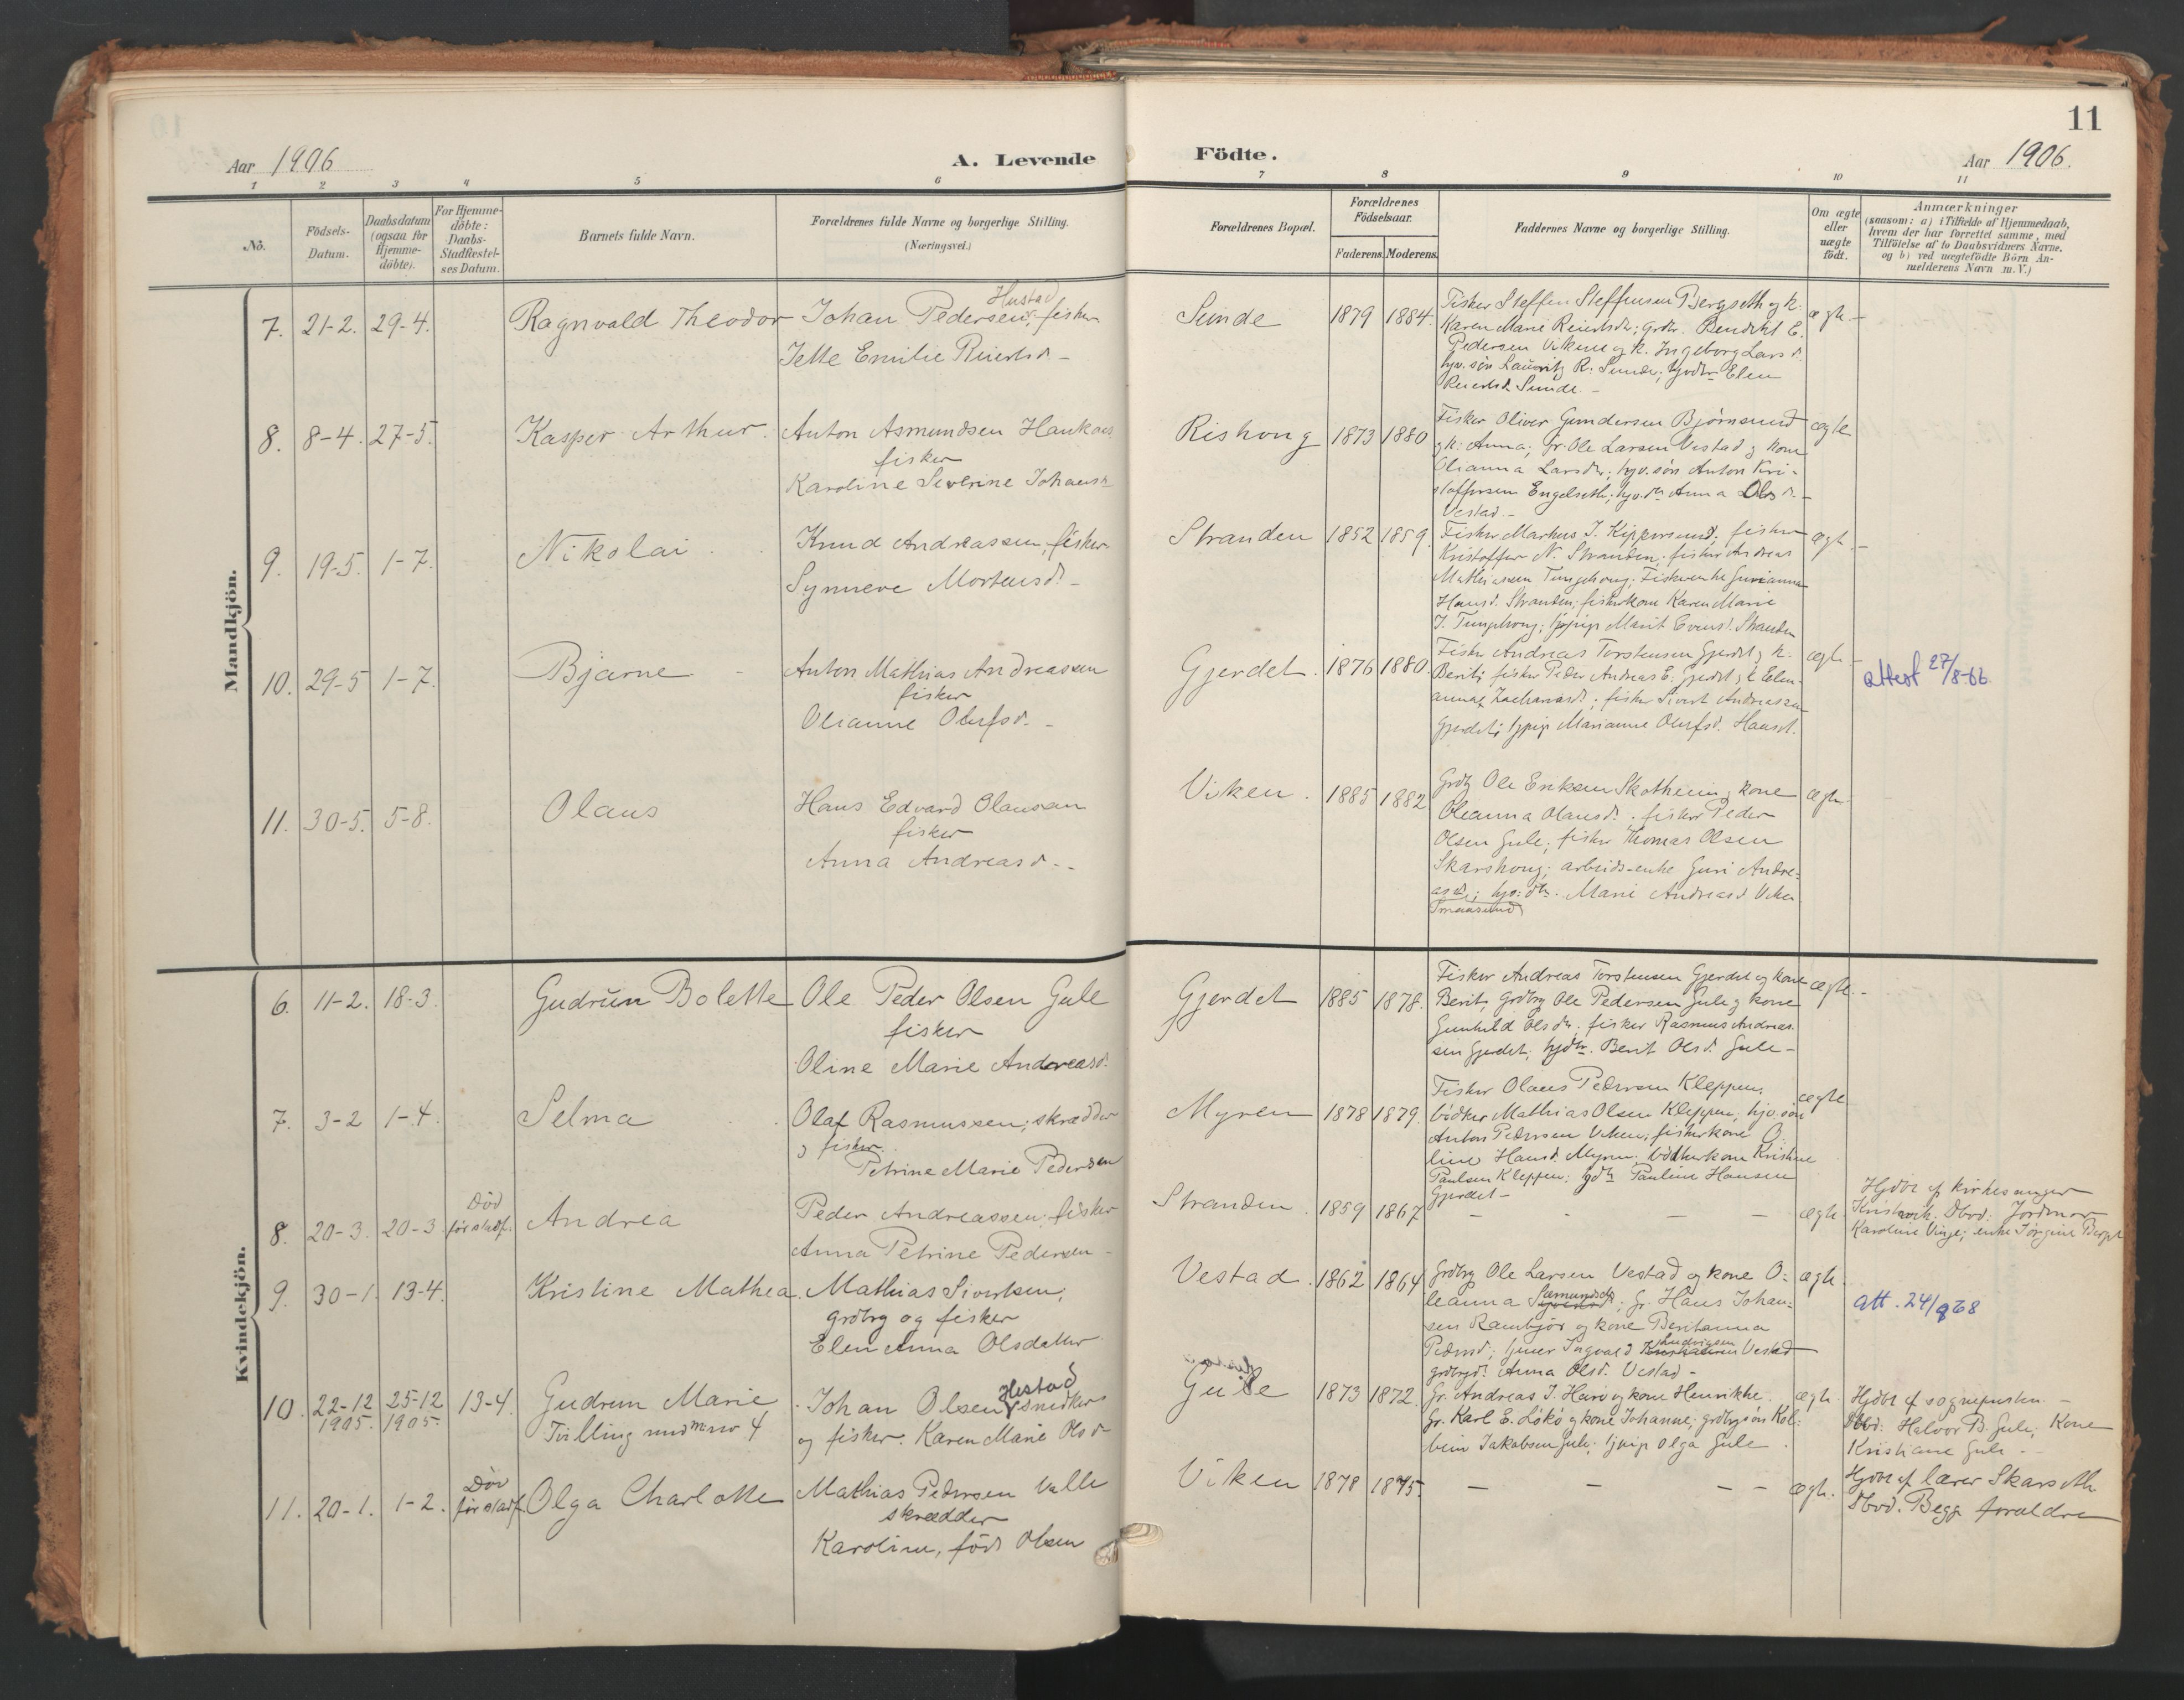 11
Aar 1906
A. Levende
Födte.
Aar 1906.
1 2 3 4 5 6
7 8 9 10 11
No.
Födsels-
Datum.
Daabsdatum
(ogsaa for
Hjemme-
döbte).
For Hjemme-
döbte:
Daabs-
Stadfæstel-
ses Datum.
Barnets fulde Navn.
Forældrenes fulde Navne og borgerlige Stilling.
(Næringsvei.)
Forældrenes Bopæl.
Forældrenes
Födselsaar.
Faderens. Moderens.
Faddernes Navne og borgerlige Stilling.
Om ægte
eller
uægte
födt.
Anmærkninger
(saasom: a) i Tilfælde af Hjemmedaab,
hvem der har forrettet samme, med
Tilföielse af to Daabsvidners Navne,
og b) ved uægtefödte Börn An-
melderens Navn m. V.)
Mandkjön.
7. 21-2. 29-4.
Ragnvald Theodor
Hustad
Johan Pedersen, fisker
Jette Emilie Reiertsd. -
Sunde
1879 1884.
Fisker Steffen Steffensen Bergseth og k.
Karen Marie Reiertsdr.; grdbr. Bendikt E.
Pedersen Vikene og k. Ingeborg Larsd.
hjv. søn Lauritz R. Sunde; hjvdtr Elen
Reiertsd. Sunde. -
ægte. -
8. 8-4. 27-5.
Kasper Arthur.
Anton Asmundsen Haukaas
fisker
Karoline Severine Johansd.
Rishoug
1873 1880
Fisker Oliver Gundersen Bjørnsund
og k. Anna; gr. Ole Larsen Vestad og kone
Olianna Larsdr.; hjv. søn Anton Kri-
stoffersen Engelseth; hjv. dtr Anna Olsd. -
Vestad. -
ægte
9. 19-5. 1-7.
Nikolai
Knud Andreassen, fisker
Synneve Mortensd. -
Stranden
1852 1859.
Fisker Markus J. Kippersund; fisker
Kristoffer N. Stranden; fisker Andreas
Mathiassen Tunghoug; Fiskerenke Gurianna
Hansd. Stranden; fiskerkone Karen Marie
J. Tunghoug; tjpige Marit Evensd. Stranden
ægt. -
10. 29-5 1-7.
Bjarne
Anton Mathias Andreassen
fisker
Olianne Olufsd. -
Gjerdet.
1876 1880.
Fisker Andreas Torstensen Gjerdet og k.
Berit; fisker Peder Andreas E. Gjerdet og k. Elen-
anna Zachariasd.; fisker Sivert Andreassen
Gjerdet; tjpige Marianne Olufsd. Haust.
ægte. -
attest 27/8-66.
11. 30-5. 5-8.
Olaus
Hans Edvard Olausen
fisker
Anna Andreasd. -
Viken.
1885 1882
Grdbg Ole Eriksen Skotheim og kone
Oleanna Olausd.; fisker Peder
Olsen Gule; fisker Thomas Olsen
Skarshoug; arbeids-enke Guri Andre-
asd.; hjv. dtr. Marie Andreasd. Viken
ægte.
Kvindekjön.
6. 11-2. 18-3.
Gudrun Bolette
Ole Peder Olsen Gule
fisker
Oline Marie Andreasd.
Gjerdet
1885 1878.
Fisker Andreas Torstensen Gjerdet og kone
Berit, grdbrg Ole Pedersen Gule og kone
Gunhild Olsdr. fisker Rasmus Andreas-
sen Gjerdet; hjvdtr. Berit Olsd. Gule -
ægte. -
7. 3-2 1-4.
Selma
Olaf Rasmussen; skrædder
og fisker
Petrine Marie Pedersen
Myren
1878 1879.
Fisker Olaus Pedersen Kleppen,
bödker Mathias Olsen Kleppen, hjv. søn
Anton Pedersen Viken; fiskerkone O-
line Hansd. Myren; bödkerkone Kristine
Paulsen Kleppen; gdtr Pauline Hansen
Gjerdet -
ægte
8. 20-3. 20-3
Död
för stadf.
Andrea
Peder Andreassen; fisker
Anna Petrine Pedersen -
Stranden.
1859 1867
- - - -
ægte.
Hjdbt af kirkesanger
Kristvik. Dbvd: Jordmor
Karoline Vinge; enke Jørgine Bergset
9. 30-1. 13-4.
Kristine Mathea.
Mathias Sivertsen,
grdbrg og fisker
Elen Anna Olsdatter
Vestad.
1862 1864
Grdbrg Ole Larsen Vestad og kone O-
leanna Sæmundsdr; gr. Hans Johan-
sen Rambjör og kone Beritanna
Pedersd; tjener Ingvald Ludvigsen Vestad
grdbrgd. Anna Olsd. Vestad -
ægte.
att. 24/9 68
10. 22-12 1905. 25-12 1905. 13-4.
Gudrun Marie
Tvilling med m. no 4
Johan Olsen Hustad snedker
og fisker. Karen Marie Olsd.
Gule
1873 1872.
Gr. Andreas J. Harö og kone Henrikke.
Gr. Karl E. Lökö og kone Johanne; grdbrgsön Kol-
bein Jakobsen Gule; tjpige Olga Gule.
ægte.
Hjdbt af sognepresten -
Dbvd: Halvor B. Gule, Kone
Kristiane Gule -
11. 20-1. 1-2.
Död
för stadf.
Olga Charlotte
Mathias Pedersen Valle
skrædder
Karoline, född Olsen
Viken
1878 1875.
- - - -
ægte.
Hjdbt af lærer Skarseth.
Dbvd. Begge forældre